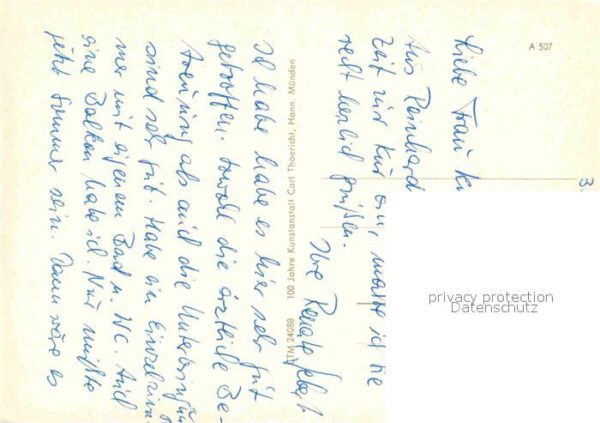 Liebe Frau K
Aus Reinhard
Zeit zur Kur bin, möchte ich Sie
recht herzlich grüßen.
Ich habe habe es hier sehr gut
getroffen. Sowohl die ärztliche Be-
treuung als auch die Unterbringung
sind sehr gut. Habe ein Einzelzim-
mer mit eigenem Bad u. WC. Auch
eine Balkon habe ich. Nur müßte
jetzt Sommer sein. Dann wäre es
Ihre Renate
100 Jahre Kunstanstalt Carl Thoericht, Hann. Münden
TM 24088
A 507
privacy protection
Datenschutz